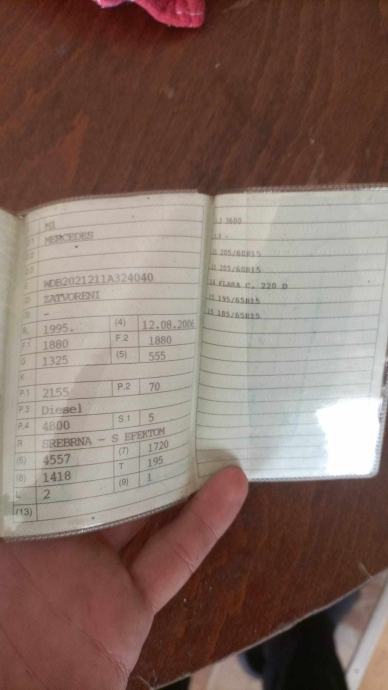 M1
MERCEDES
WDB2021211A324040
ZATVORENI
-
1995. (4) 12.08.2006
F.1 1880 F.2 1880
G 1325 (5) 555
K
P.1 2155 P.2 70
P.3 Diesel
P.4 4800 S.1 5
R SREBRNA - S EFEKTOM
(6) 4557 (7) 1720
(8) 1418 T 195
L 2 (9) 1
(13)
3600
205/60R15
205/60R15
KLASA C. 220 D
195/65R15
185/65R15